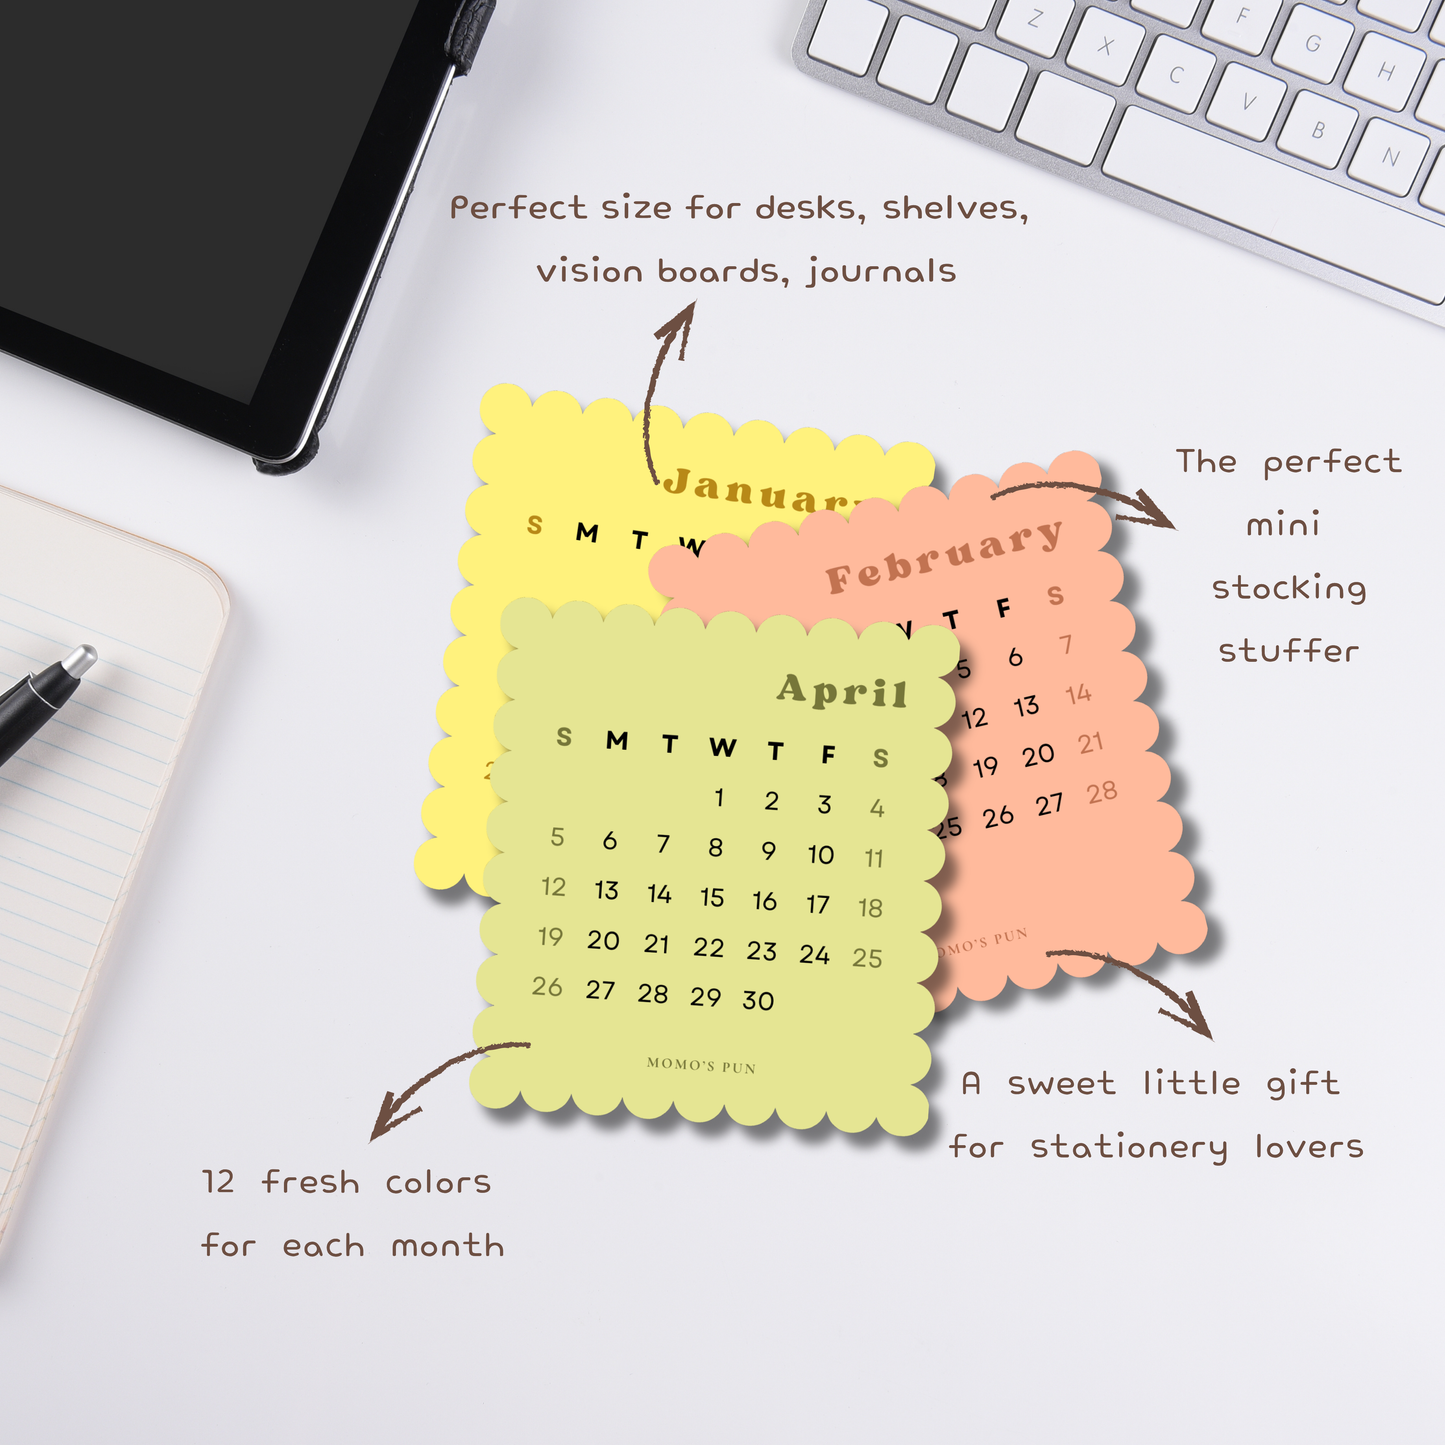 Z X C V B N F G H
Perfect size for desks, shelves,
vision boards, journals
January
S M T W
The perfect
mini
stocking
stuffer
February
T F S
5 6 7
12 13 14
19 20 21
25 26 27 28
MOMO'S PUN
April
S M T W T F S
1 2 3 4
5 6 7 8 9 10 11
12 13 14 15 16 17 18
19 20 21 22 23 24 25
26 27 28 29 30
MOMO'S PUN
A sweet little gift
for stationery lovers
12 fresh colors
for each month